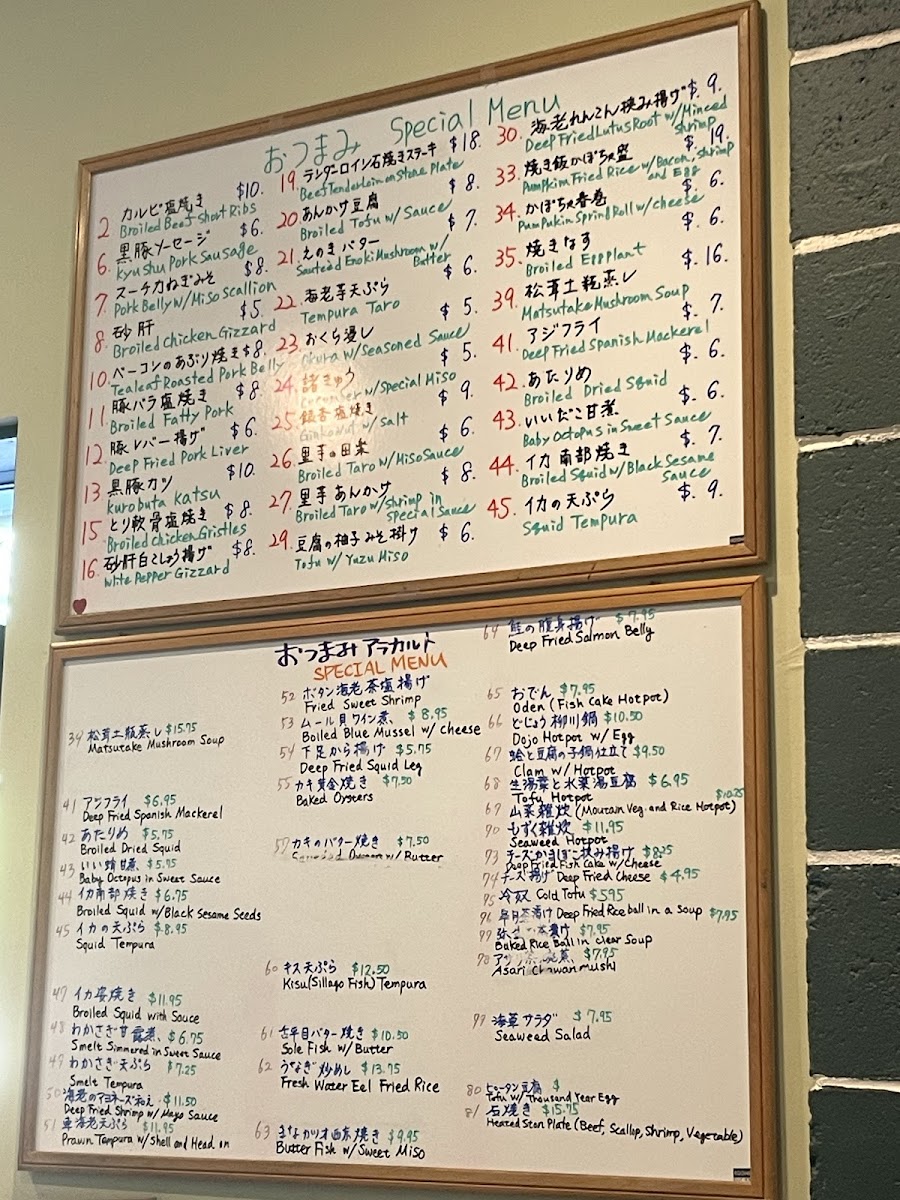 おつまみ Special Menu
2 カルビ塩焼き $10.
Broiled Beef Short Ribs
6. 黒豚ソーセージ $6.
Kyushu Pork Sausage
7. スーチカねぎみそ $8.
Pork Belly w/ Miso Scallion
8. 砂肝 $5.
Broiled Chicken Gizzard
10. ベーコンのあぶり焼き $8.
Tealeaf Roasted Pork Belly
11. 豚バラ塩焼き $8.
Broiled Fatty Pork
12. 豚レバー揚げ $6.
Deep Fried Pork Liver
13 黒豚カツ $10.
Kurobuta Katsu
15 とり軟骨塩焼き $8.
Broiled Chicken Gristles
16. 砂肝白こしょう揚げ $8.
White Pepper Gizzard
19. テンダーロイン石焼きステーキ $18.
Beef Tenderloin on Stone Plate
20 あんかけ豆腐 $8.
Broiled Tofu w/ Sauce
21. えのきバター $7.
Sauteed Enoki Mushroom w/ Butter
22. 海老芋天ぷら $6.
Tempura Taro
23. おくら浸し $5.
Okura w/ Seasoned Sauce
24. 諸きゅう $5.
w/ Special Miso
25. 銀杏塩焼き $9.
Ginko Nut w/ Salt
26. 里芋の田楽 $6.
Broiled Taro w/ Miso Sauce
27. 里芋あんかけ $8.
Broiled Taro w/ Shrimp in Special Sauce
29. 豆腐の柚子みそ掛け $6.
Tofu w/ Yuzu Miso
30. 海老れんこん挟み揚げ $.9.
Deep Fried Lutus Root w/ Minced Shrimp
33. 焼き飯かぼちゃ盛 $.19.
Pumpkim Fried Rice w/ Bacon, Shrimp and Egg
34. かぼちゃ春巻 $.6.
Pumpukin Sprind Roll w/ cheese
35. 焼きなす $.6.
Broiled Eggplant
39. 松茸土瓶蒸し $.16.
Matsutake Mushroom Soup
41. アジフライ $.7.
Deep Fried Spanish Mackerel
42. あたりめ $.6.
Broiled Dried Squid
43. いいだこ甘煮 $.6.
Baby Octopus in Sweet Sauce
44. イカ南部焼き $.7.
Broiled Squid w/ Black Sesame Sauce
45. イカの天ぷら $.9.
Squid Tempura
おつまみ アラカルト
SPECIAL MENU
39 松茸土瓶蒸し $15.75
Matsutake Mushroom Soup
41 アジフライ $6.95
Deep Fried Spanish Mackerel
42 あたりめ $5.75
Broiled Dried Squid
43 いい蛸甘煮 $5.75
Baby Octopus in Sweet Sauce
44 イカ南部焼き $6.75
Broiled Squid w/Black Sesame Seeds
45 イカの天ぷら $8.95
Squid Tempura
47 イカ姿焼き $11.95
Broiled Squid with Sauce
48 わかさぎ甘露煮 $6.75
Smelt Simmered in Sweet Sauce
49 わかさぎ天ぷら $7.25
Smelt Tempura
50 海老のマヨネーズ和え $11.50
Deep Fried Shrimp w/ Mayo Sauce
51 車海老天ぷら $11.95
Prawn Tampura w/ Shell and Head on
52 ボタン海老茶塩揚げ
Fried Sweet Shrimp
53 ムール貝ワイン煮 $8.95
Boiled Blue Mussel w/ Cheese
54 下足から揚げ $5.75
Deep Fried Squid Leg
55 カキ黄金焼き $7.50
Baked Oysters
57 カキのバター焼き $7.50
w/ Butter
60 キス天ぷら $12.50
Kisu(Sillago Fish) Tempura
61 舌平目バター焼き $10.50
Sole Fish w/ Butter
62 うなぎ炒めし $13.75
Fresh Water Eel Fried Rice
63 まながつお西京焼き $9.95
Butter Fish w/ Sweet Miso
64 鮭の腹身揚げ $7.95
Deep Fried Salmon Belly
65 おでん $7.95
Oden (Fish Cake Hotpot)
66 どじょう柳川鍋 $10.50
Dojo Hotpot w/ Egg
67 蛤と豆腐の子鍋仕立て $9.50
Clam w/ Hotpot
68 生湯葉と水菜湯豆腐 $6.95
Tofu Hotpot
69 山菜雑炊 (Mountain Veg. and Rice Hotpot) $10.25
70 もずく雑炊 $11.95
Seaweed Hotpot
73 チーズかまぼこ挟み揚げ $8.25
Deep Fried Fish Cake w/Cheese
74 チーズ揚げ Deep Fried Cheese $4.95
75 冷奴 Cold Tofu $5.95
76 茶漬け Deep Fried Rice ball in a Soup $7.95
77 茶漬け $7.95
Baked Rice Ball in Clear Soup
78 $7.95
Asari Chawanmushi
79 海草サラダ $7.95
Seaweed Salad
80 ピータン豆腐 $
Tofu w/ Thousand Year Egg
81 石焼き $15.75
Heated Ston Plate (Beef, Scallop, Shrimp, Vegetable)